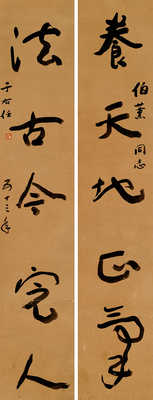 養天地正氣
伯薰同志
法古今完人
五十三年
于右任